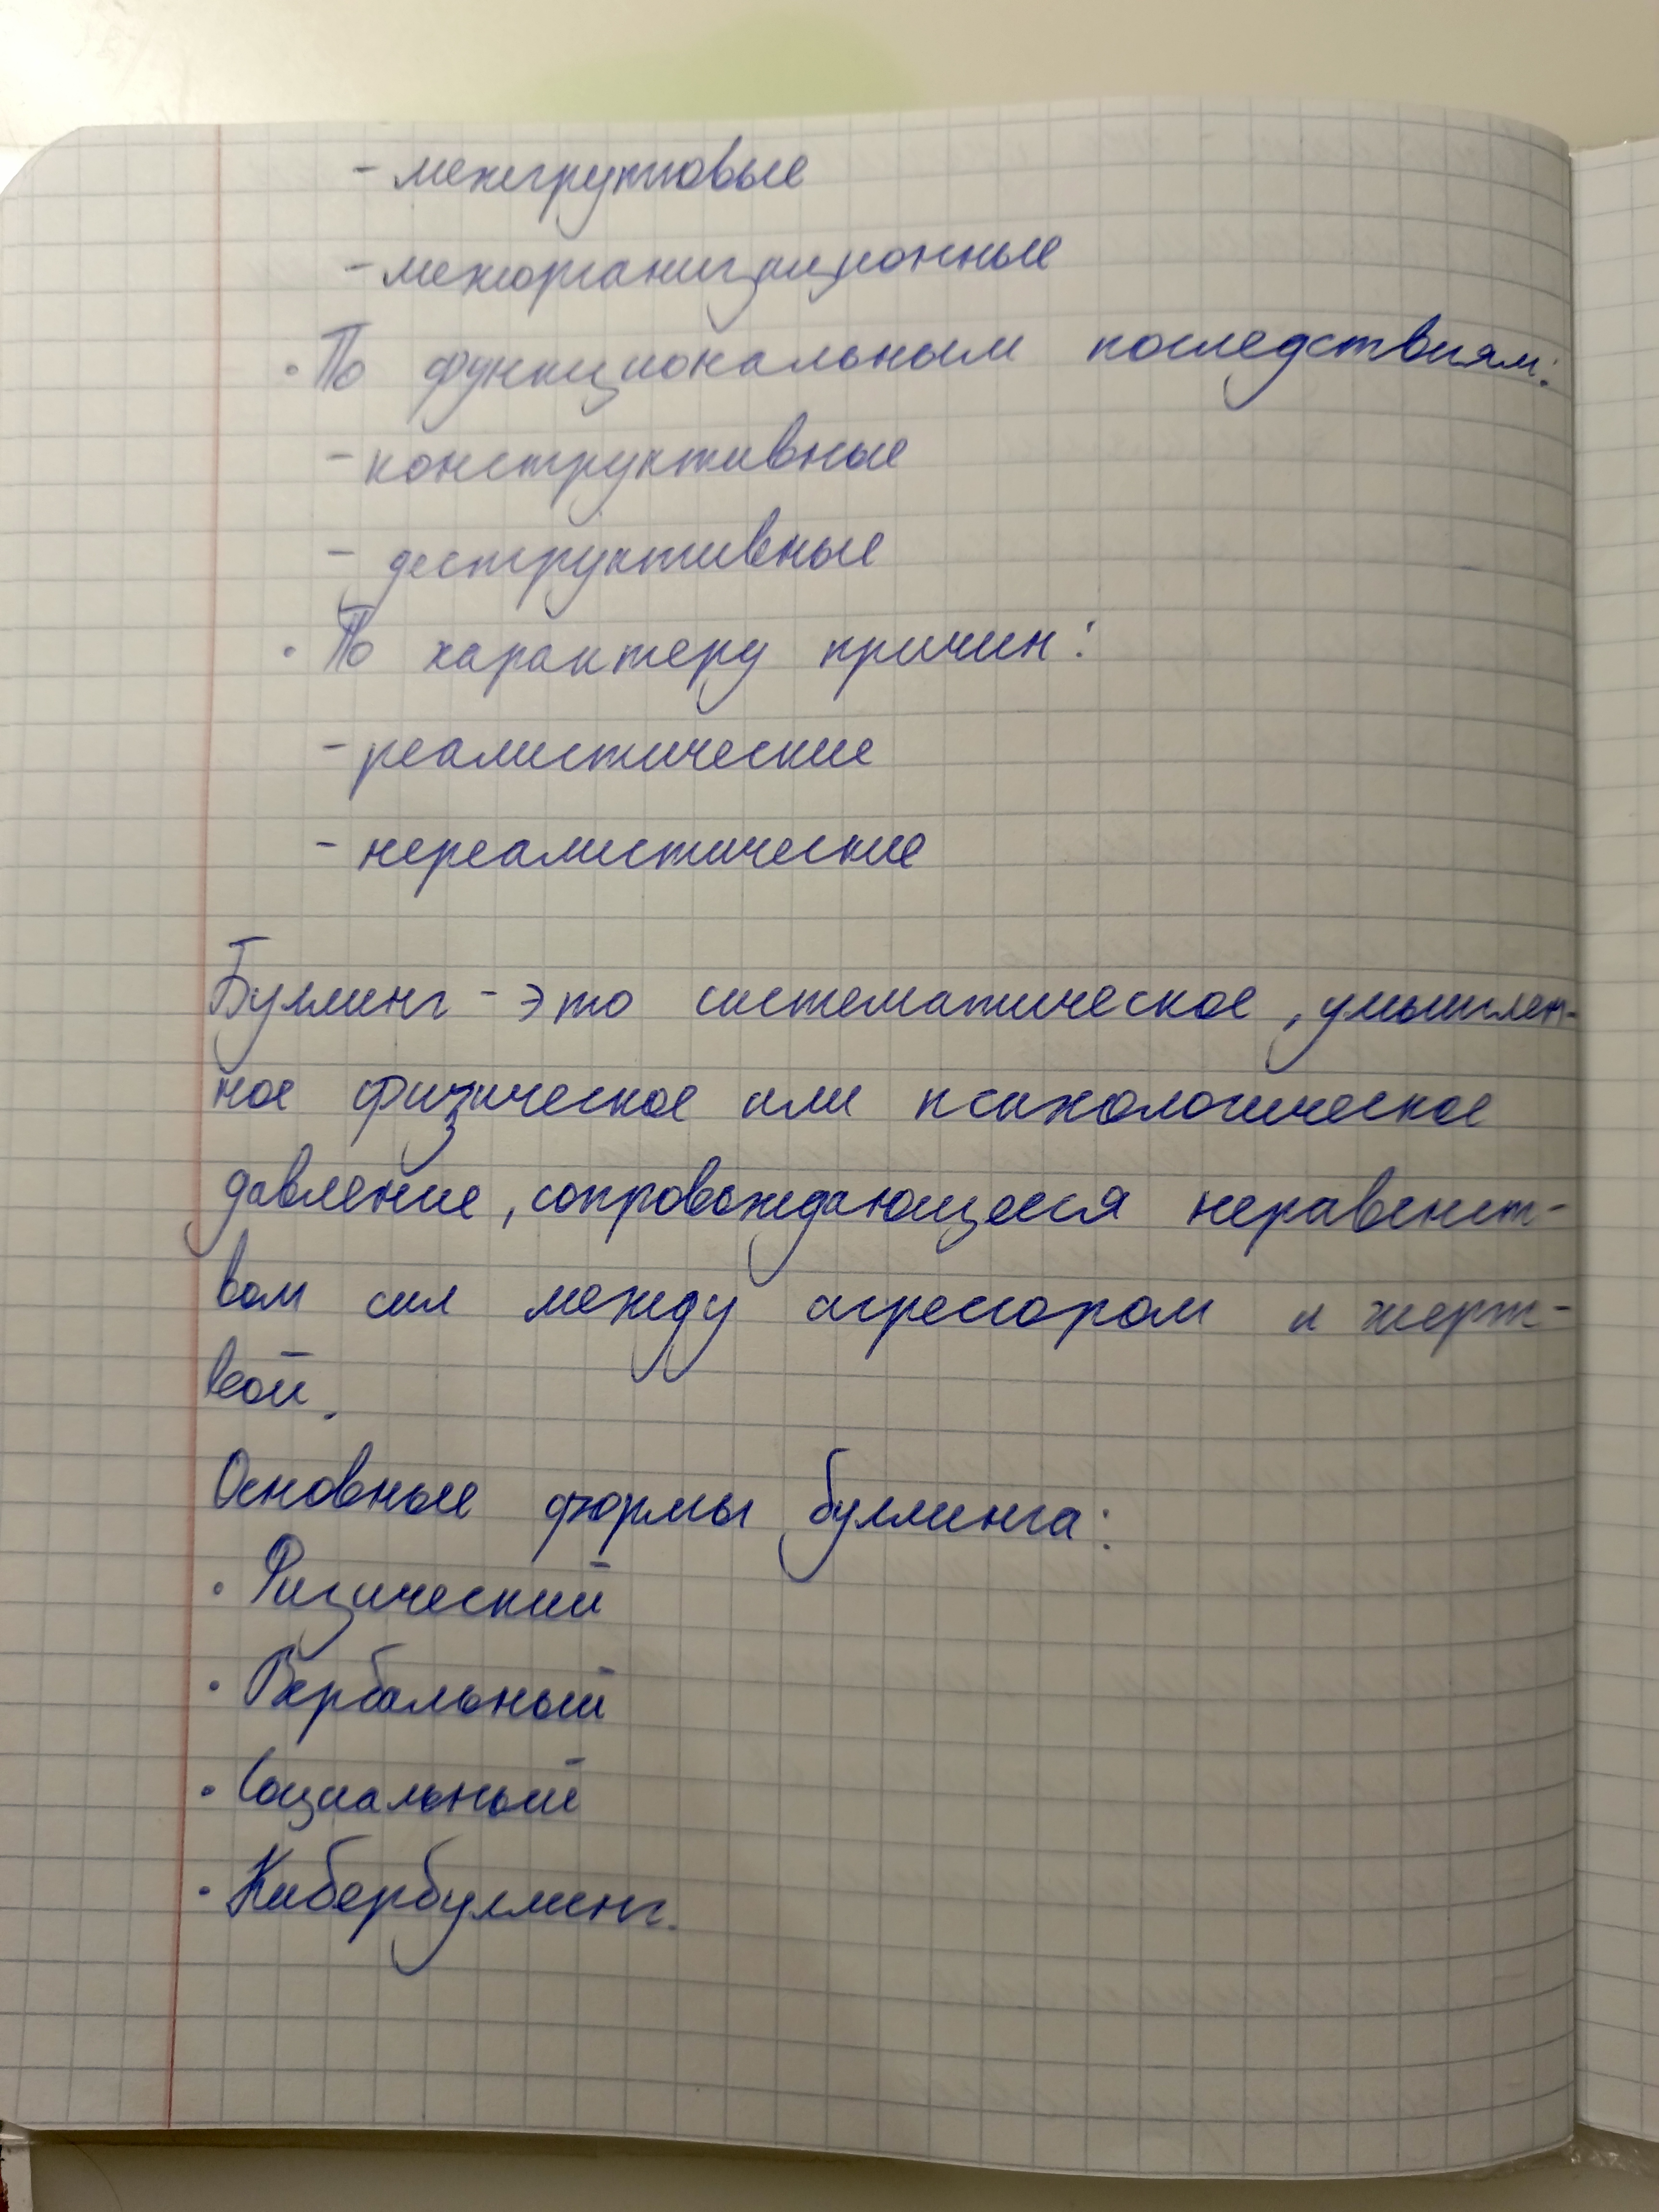 - межгрупповые
- межорганизационные
· По функциональным последствиям:
- конструктивные
- деструктивные
· По характеру причин:
- реалистические
- нереалистические
Буллинг - это систематическое, умышлен-
ное физическое или психологическое
давление, сопровождающееся неравенст-
вом сил между агрессором и жерт-
вой.
Основные формы буллинга:
· Физический
· Вербальный
· Социальный
· Кибербуллинг.